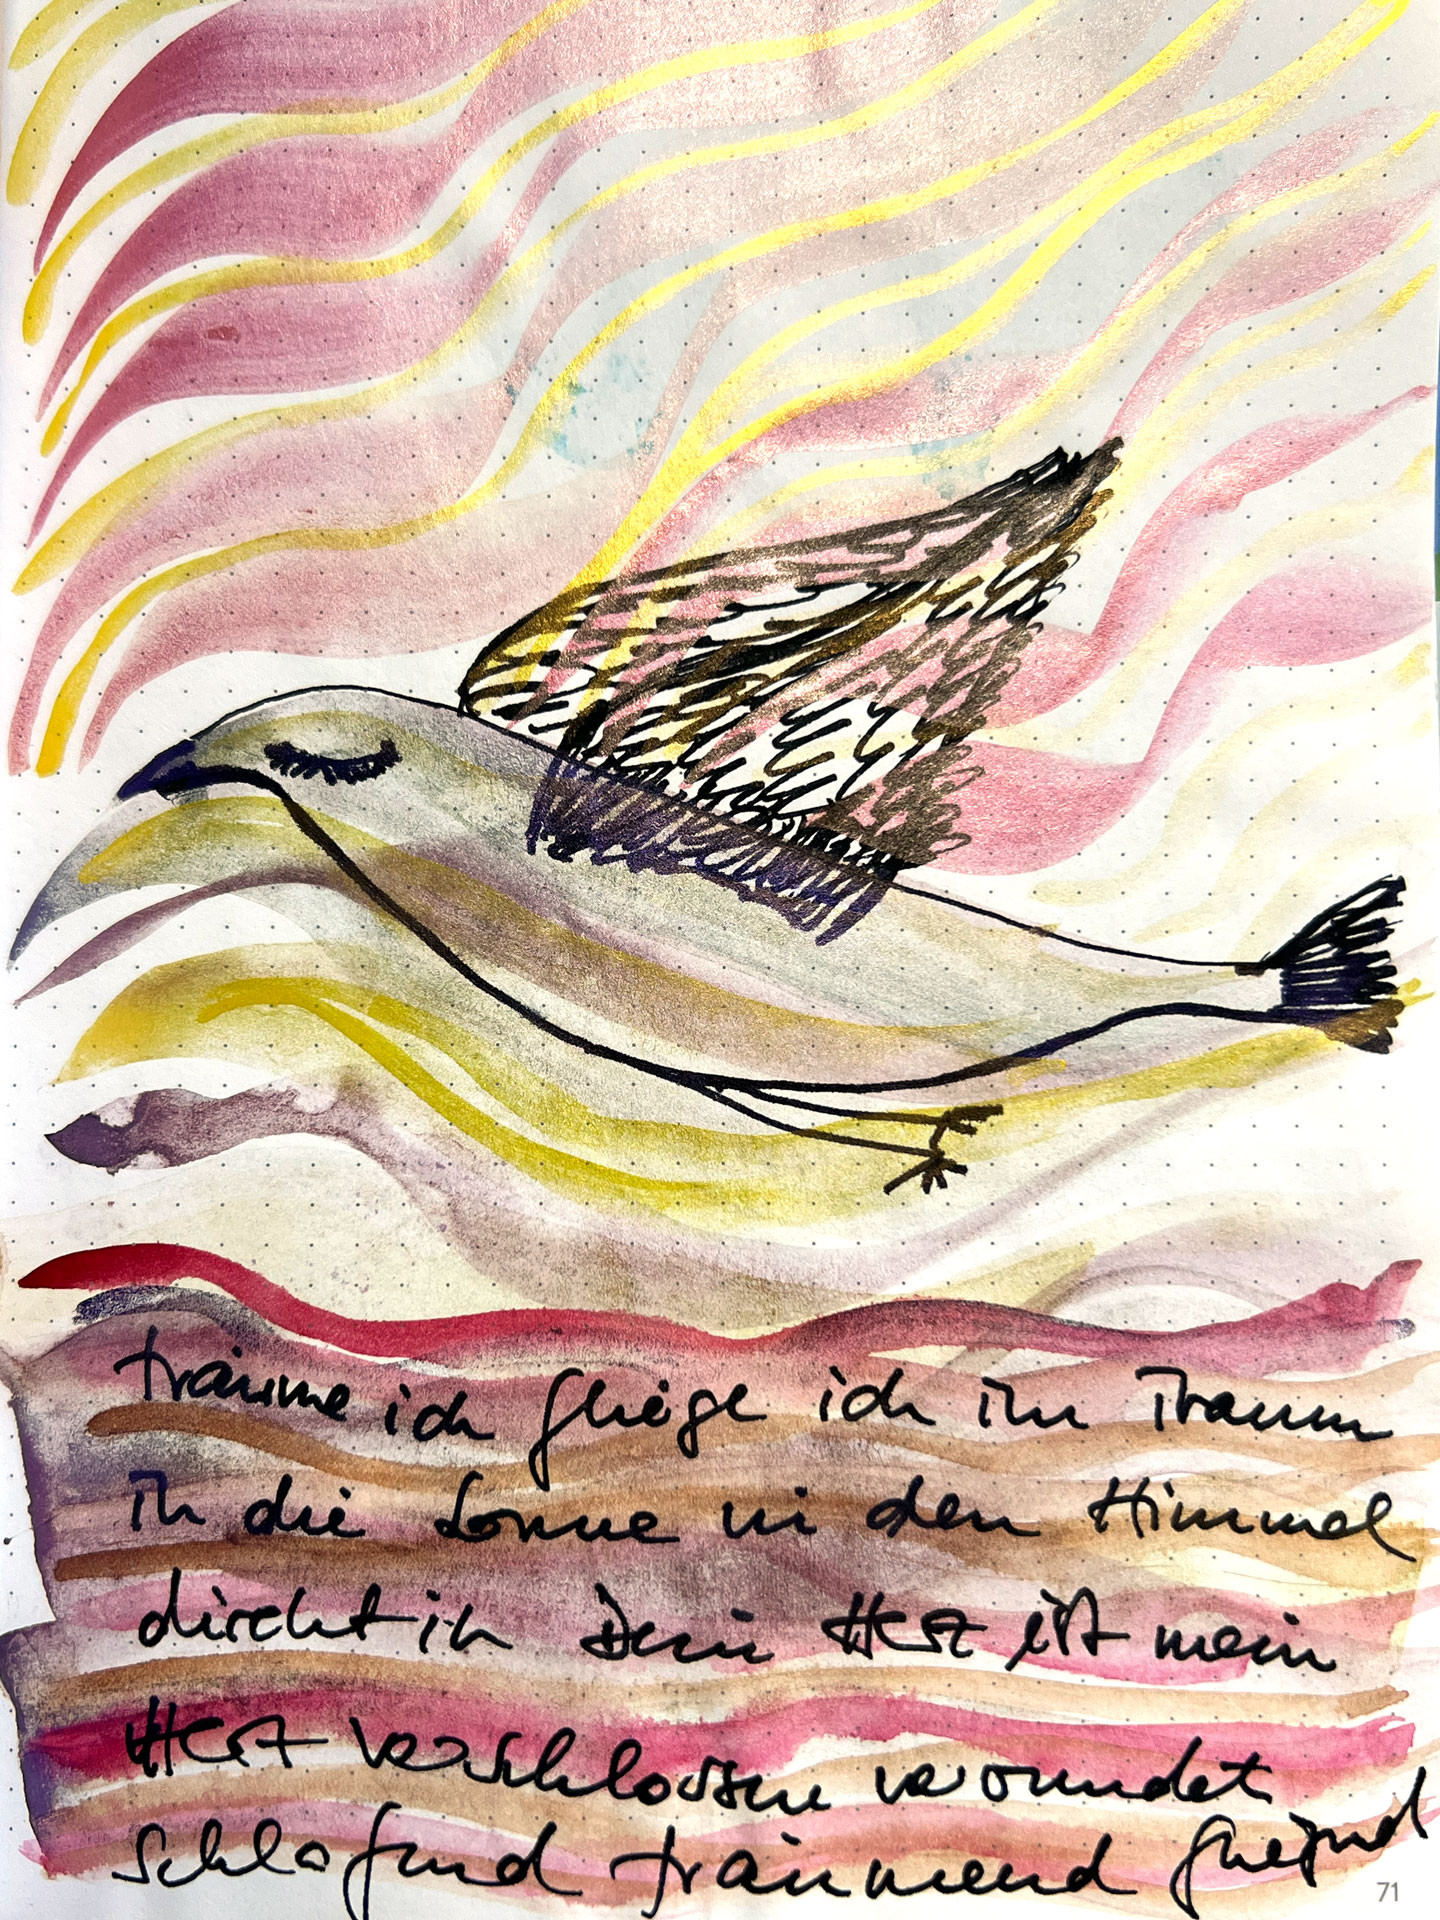 träume ich fliege ich im Traum
in die Sonne in den Himmel
direkt in Dein Herz ist mein
Herz verschlossen verwundet
schlafend träumend fliegend
71